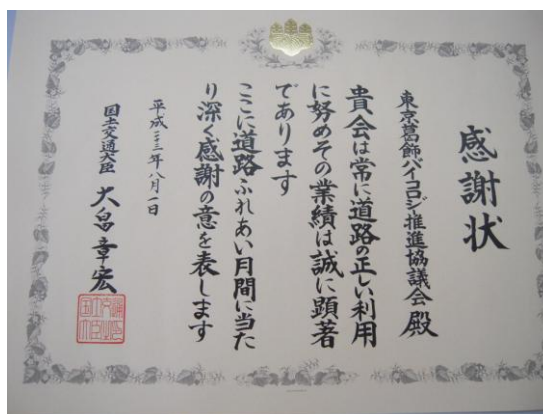 感謝状
東京葛飾バイコロジー推進協議会 殿
貴会は常に道路の正しい利用
に努めその業績は誠に顕著
であります
ここに道路ふれあい月間に当た
り深く感謝の意を表します
平成二三年八月一日
国土交通大臣 大畠章宏